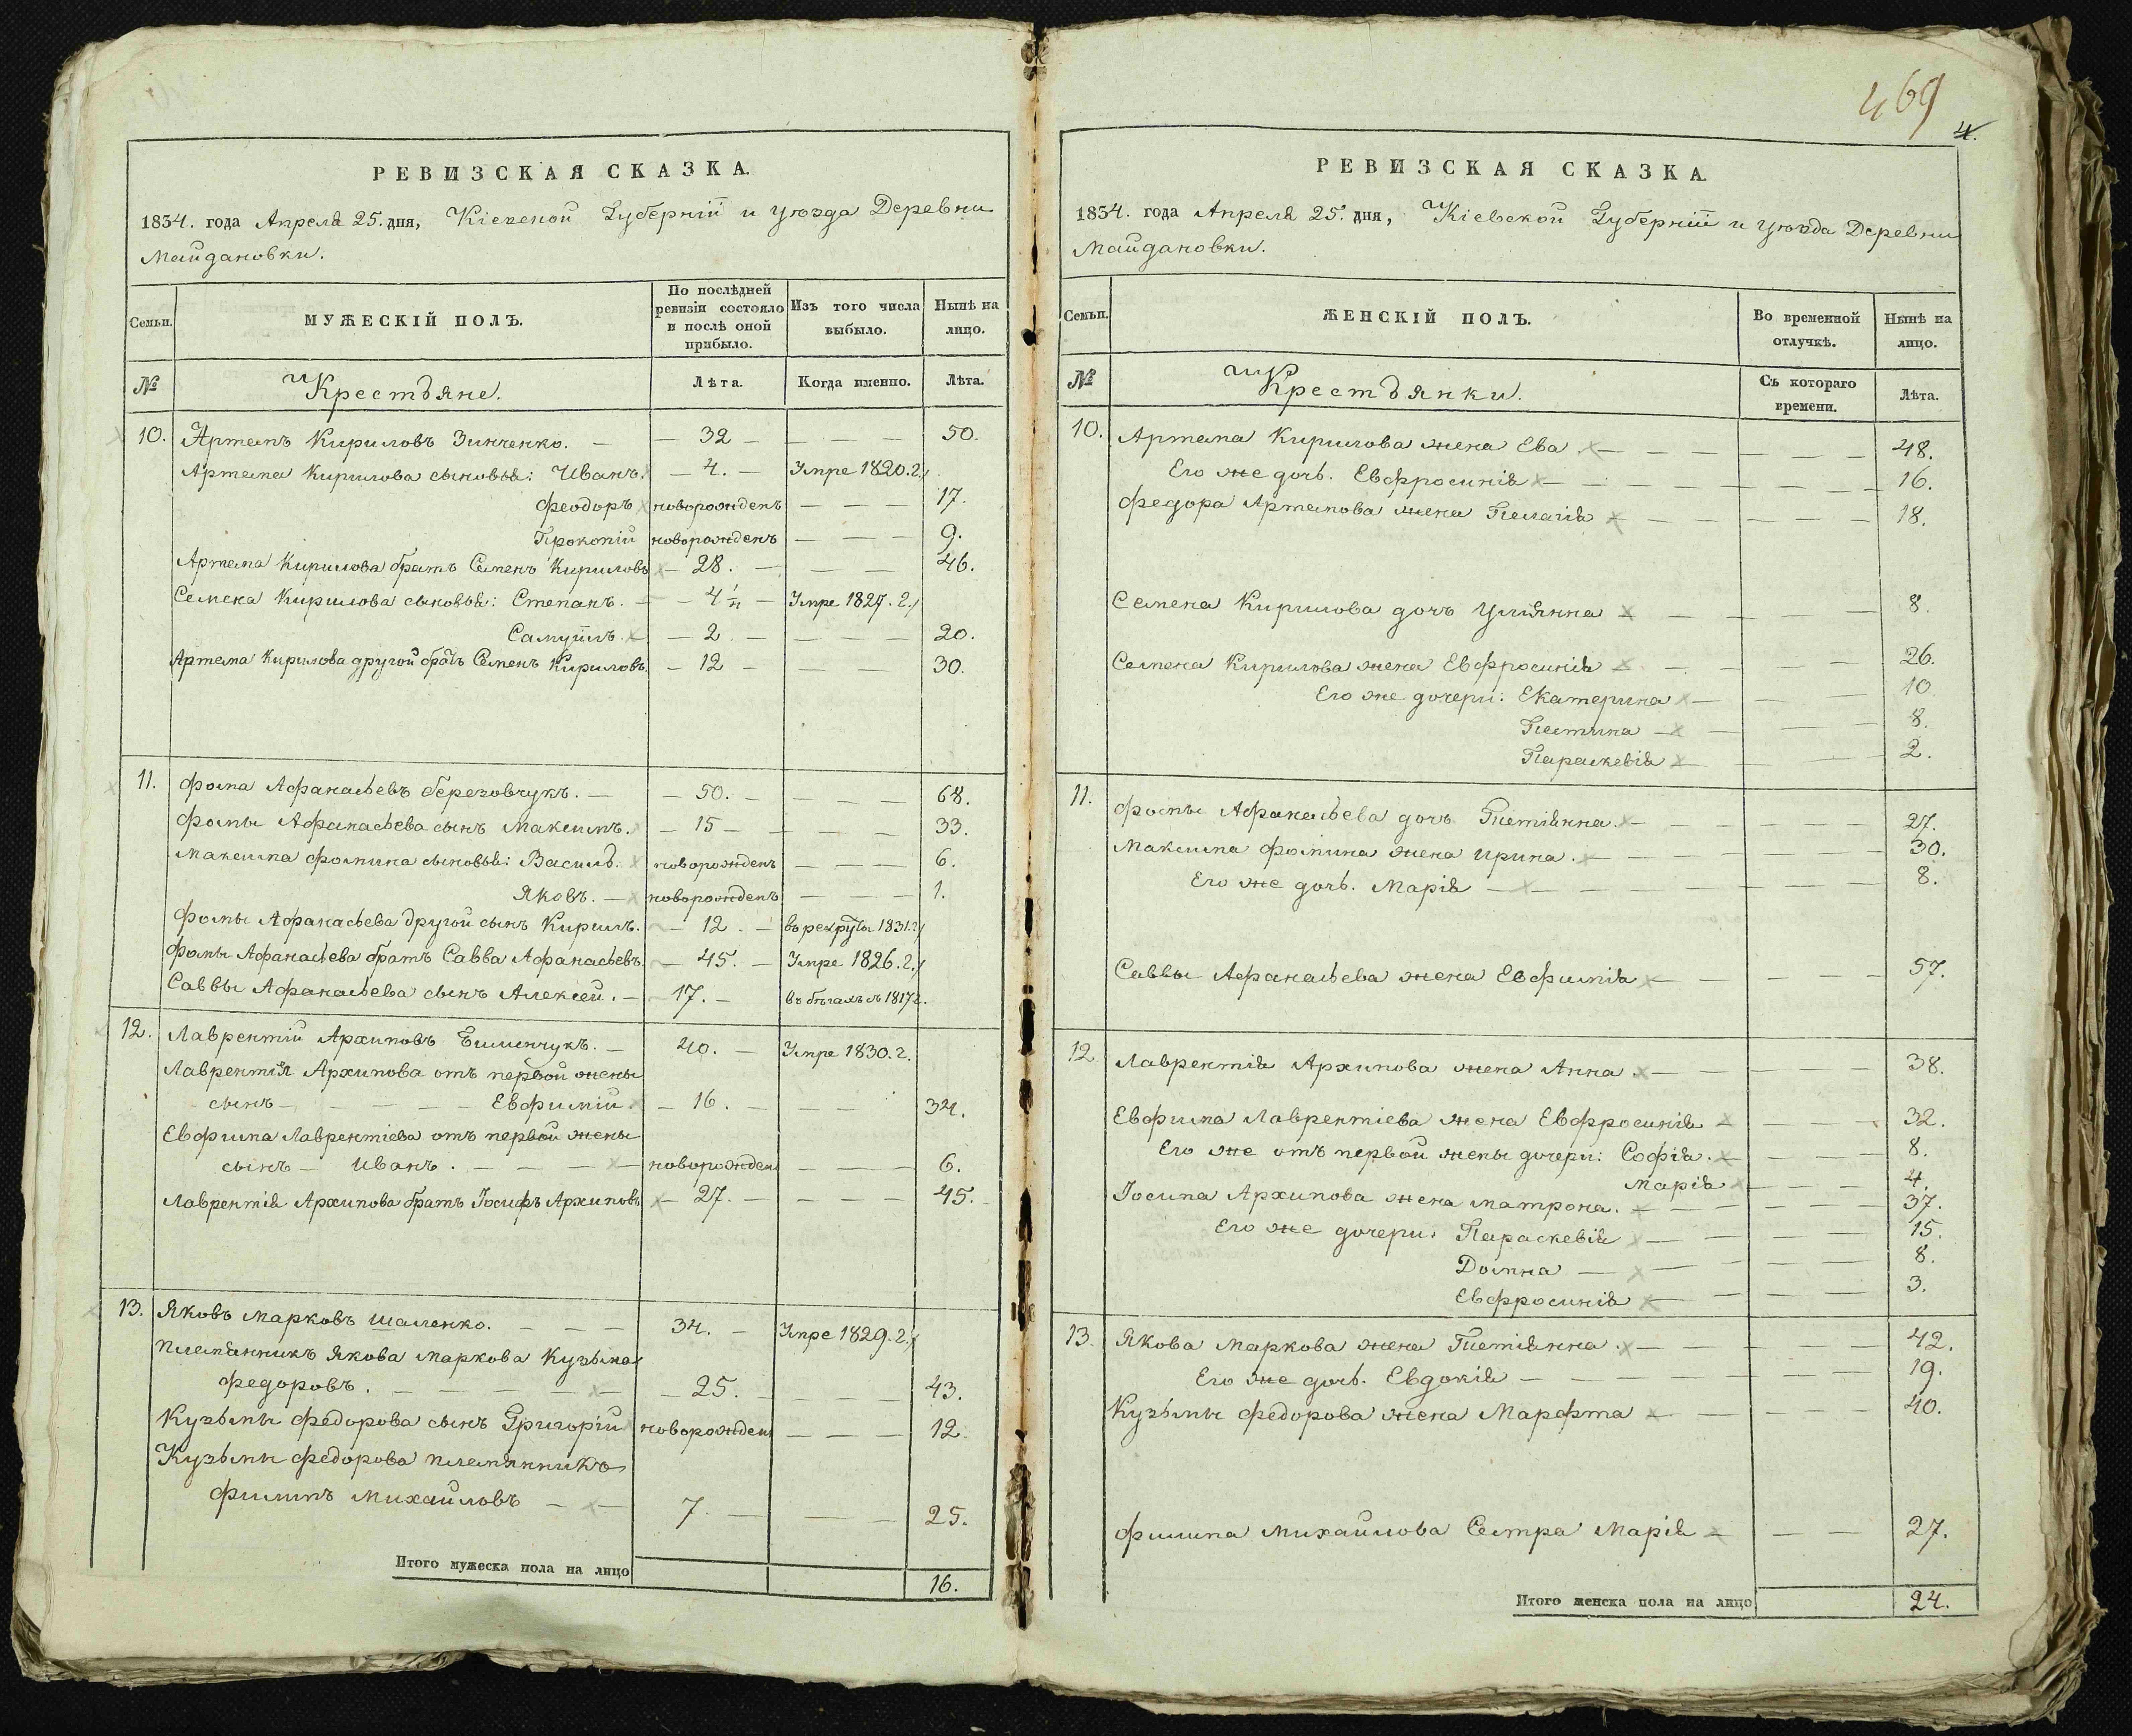 РЕВИЗСКАЯ СКАЗКА.
1834. года Апреля 25. дня, Кіевской Губерніи и уѣзда Деревни
Майдановки.
Семьи. МУЖЕСКІЙ ПОЛЪ. По послѣдней ревизіи состояло и послѣ оной прибыло. Изъ того числа выбыло. Нынѣ на лицо.
№ Крестьяне. Лѣта. Когда именно. Лѣта.
10. Артемъ Кириловъ Зинченко. — 32 — — — — 50.
Артема Кирилова сыновья: Иванъ. — 4. — Умре 1820. г.
Феодоръ новорожденъ — — — 17.
Прокопій новорожденъ — — — 9.
Артема Кирилова братъ Семенъ Кириловъ — 28. — — — 46.
Семена Кирилова сыновья: Степанъ. — 4½ — Умре 1827. г.
Самуилъ. — 2 — — — — 20.
Артема Кирилова другой братъ Семенъ Кириловъ. — 12 — — — 30.
11. Фома Афанасьевъ Березовчукъ. — — 50. — — — — 68.
Фомы Афанасьева сынъ Максимъ. — 15 — — — — 33.
Максима Фомина сыновья: Василь. новорожденъ — — — 6.
Яковъ. — новорожденъ — — — 1.
Фомы Афанасьева другой сынъ Кирилъ. — 12. — въ рекруты 1831. г.
Фомы Афанасьева братъ Савва Афанасьевъ. — 45. — Умре 1826. г.
Саввы Афанасьева сынъ Алексей. — 17. — въ бѣгахъ съ 1817 г.
12. Лаврентій Архиповъ — 40. — Умре 1830. г.
Лаврентія Архипова отъ первой жены
сынъ — — — — Евфимій. — 16. — — — 34.
Евфима Лаврентіева отъ первой жены
сынъ — Иванъ. — — — новорожден — — — 6.
Лаврентія Архипова братъ Іосифъ Архиповъ — 27. — — — — 45.
13. Яковъ Марковъ Шаленко. — — — 34. — Умре 1829. г.
Племянникъ Якова Маркова Кузьма
Федоровъ. — — — — — 25. — — — 43.
Кузьмы Федорова сынъ Григорій новорожден — — — 12.
Кузьмы Федорова племянникъ
Филипъ Михайловъ — — 7. — — — 25.
Итого мужеска пола на лицо 16.
469
4.
РЕВИЗСКАЯ СКАЗКА.
1834. года Апреля 25. дня, Кіевской Губерніи и уѣзда Деревни
Майдановки.
Семьи. ЖЕНСКІЙ ПОЛЪ. Во временной отлучкѣ. Нынѣ на лицо.
№ Крестьянки. Съ котораго времени. Лѣта.
10. Артема Кирилова жена Ева — — — — — — 48.
Его же дочь. Евфросинія — — — — — — 16.
Федора Артемова жена Пелагія — — — — — 18.
Семена Кирилова дочь Ульянна — — — — 8.
Семена Кирилова жена Евфросинія — — — — 26.
Его же дочери: Екатерина — — — — 10.
— — — — 8.
Параскевія — — — — 2.
11. Фомы Афанасьева дочь Татіянна. — — — — — 27.
Максима Фомина жена Ирина. — — — — — 30.
Его же дочь. Марія — — — — — — 8.
Саввы Афанасьева жена Евфимія — — — — 57.
12 Лаврентія Архипова жена Анна. — — — — — 38.
Евфима Лаврентіева жена Евфросинія — — — — 32.
Его же отъ первой жены дочери: Софія. — — — — 8.
Марія — — — 4.
Іосипа Архипова жена Матрона. — — — — — — 37.
Его же дочери: Параскевія — — — — 15.
Домна — — — — — 8.
Евфросинія — — — — 3.
13. Якова Маркова жена Татіянна. — — — — — 42.
Его же дочь. Евдокія — — — — — — 19.
Кузьмы Федорова жена Марфта — — — — — 40.
Филипа Михайлова Сестра Марія — — — 27.
Итого женска пола на лицо 24.